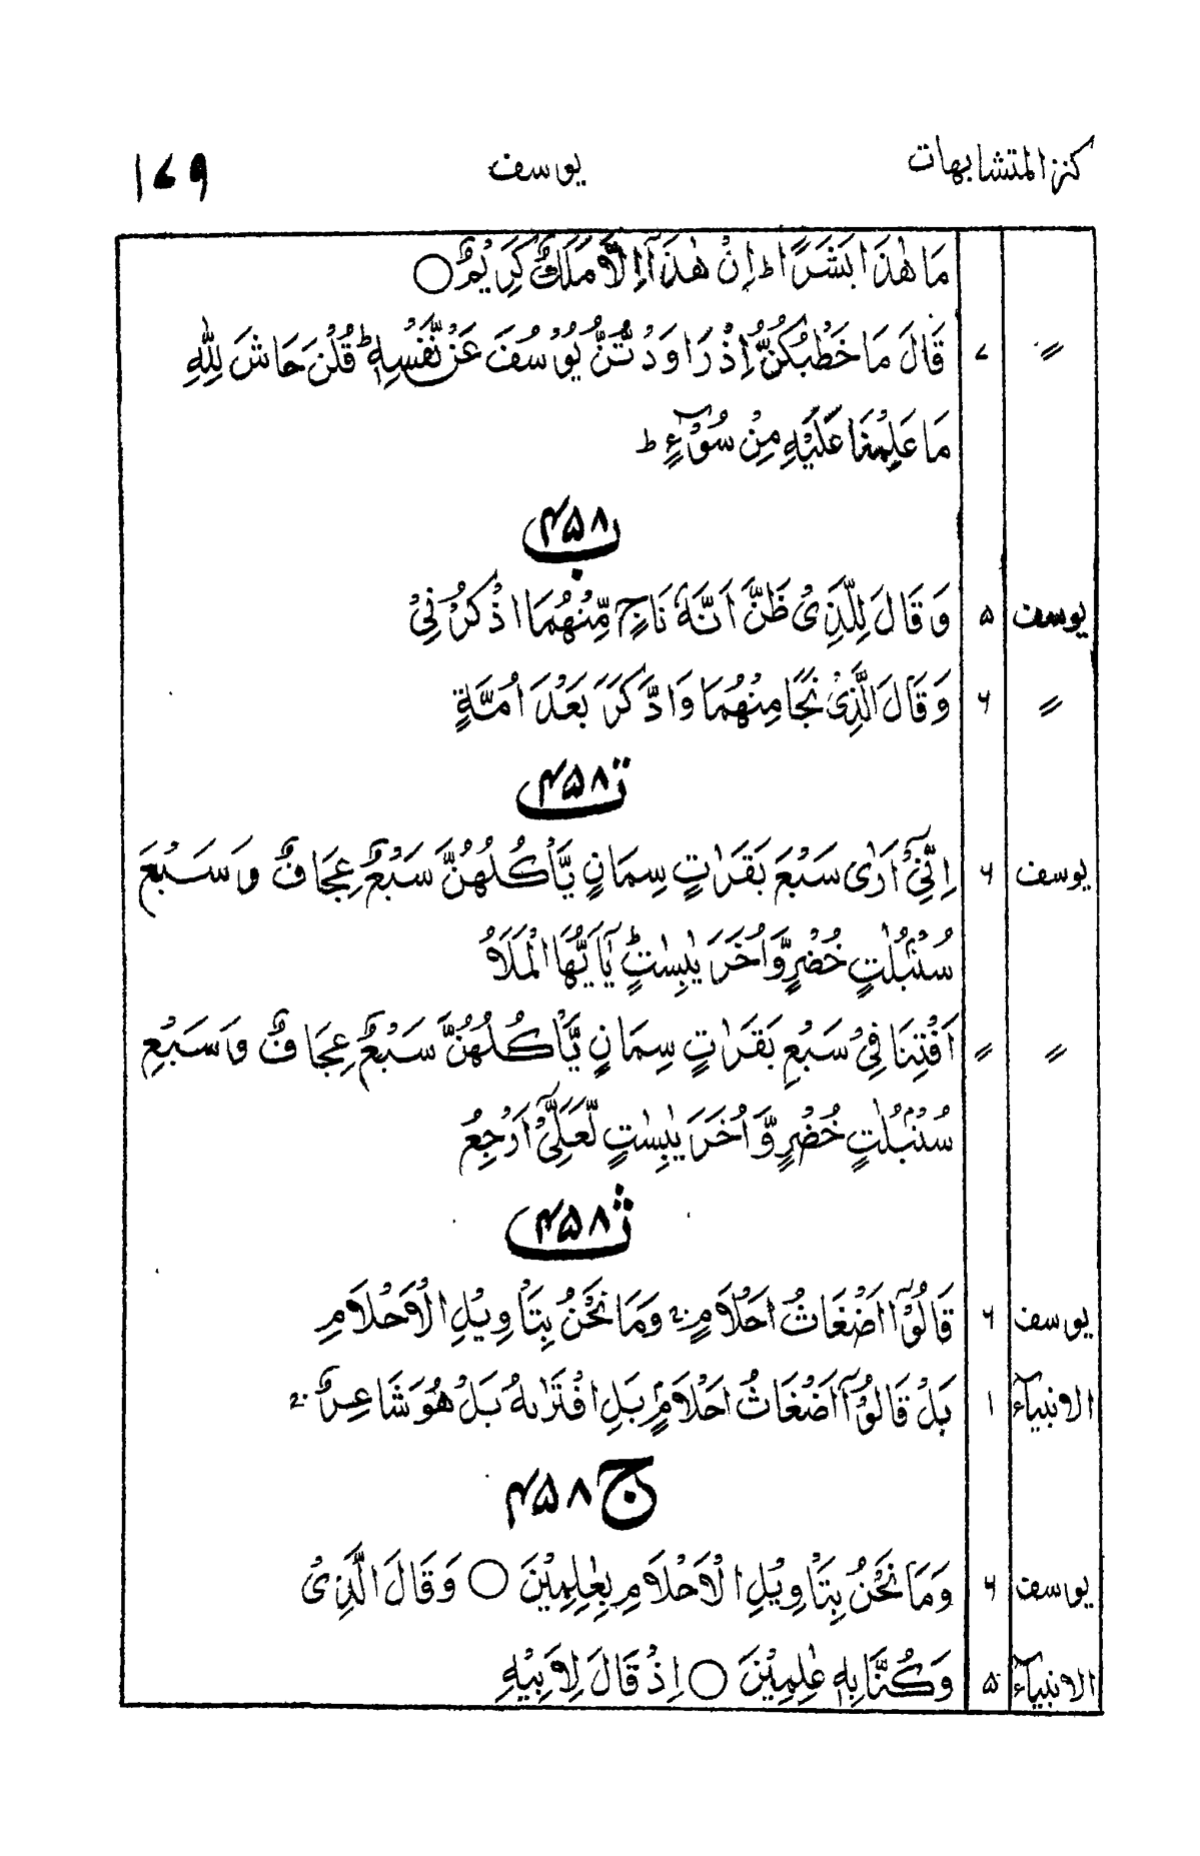 كنز المتشابهات يوسف ۱۷۹
مَا هٰذَا بَشَرًا ؕ اِنْ هٰذَاۤ اِلَّا مَلَكٌ كَرِيْمٌ ○
〃 ۷ قَالَ مَا خَطْبُكُنَّ اِذْ رَاوَدْتُّنَّ يُوْسُفَ عَنْ نَّفْسِهٖ ؕ قُلْنَ حَاشَ لِلّٰهِ
مَا عَلِمْنَا عَلَيْهِ مِنْ سُوْٓءٍ ؕ
ب ۴۵۸
يوسف ۵ وَقَالَ لِلَّذِىْ ظَنَّ اَنَّهٗ نَاجٍ مِّنْهُمَا اذْكُرْنِىْ
〃 ۶ وَقَالَ الَّذِىْ نَجَا مِنْهُمَا وَادَّكَرَ بَعْدَ اُمَّةٍ
ت ۴۵۸
يوسف ۶ اِنِّىْۤ اَرٰى سَبْعَ بَقَرٰتٍ سِمَانٍ يَّاْكُلُهُنَّ سَبْعٌ عِجَافٌ وَّسَبْعَ
سُنْۢبُلٰتٍ خُضْرٍ وَّاُخَرَ يٰبِسٰتٍ ؕ يٰۤاَيُّهَا الْمَلَاُ
〃 〃 اَفْتِنَا فِىْ سَبْعِ بَقَرٰتٍ سِمَانٍ يَّاْكُلُهُنَّ سَبْعٌ عِجَافٌ وَّسَبْعِ
سُنْۢبُلٰتٍ خُضْرٍ وَّاُخَرَ يٰبِسٰتٍ لَّعَلِّىْۤ اَرْجِعُ
ث ۴۵۸
يوسف ۶ قَالُوْۤا اَضْغَاثُ اَحْلَامٍ ۚ وَمَا نَحْنُ بِتَاْوِيْلِ الْاَحْلَامِ
الانبيآء ۱ بَلْ قَالُوْۤا اَضْغَاثُ اَحْلَامٍۭ بَلِ افْتَرٰىهُ بَلْ هُوَ شَاعِرٌ ۚ
ج ۴۵۸
يوسف ۶ وَمَا نَحْنُ بِتَاْوِيْلِ الْاَحْلَامِ بِعٰلِمِيْنَ ○ وَقَالَ الَّذِىْ
الانبيآء ۵ وَكُنَّا بِهٖ عٰلِمِيْنَ ○ اِذْ قَالَ لِاَبِيْهِ